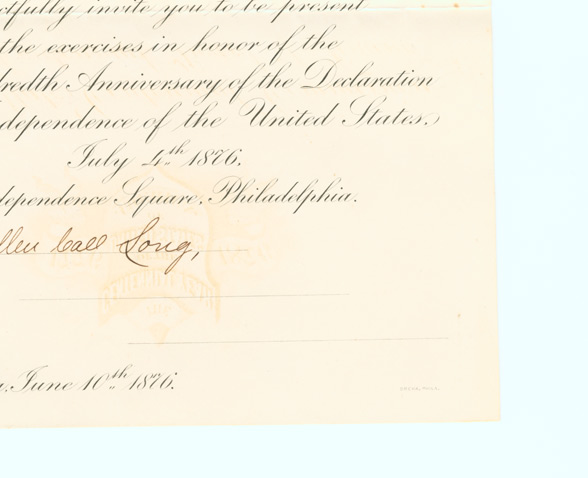 ctfully invite you to be present
the exercises in honor of the
redth Anniversary of the Declaration
dependence of the United States.
July 4th 1876.
dependence Square, Philadelphia.
llen Call Long,
June 10th 1876.